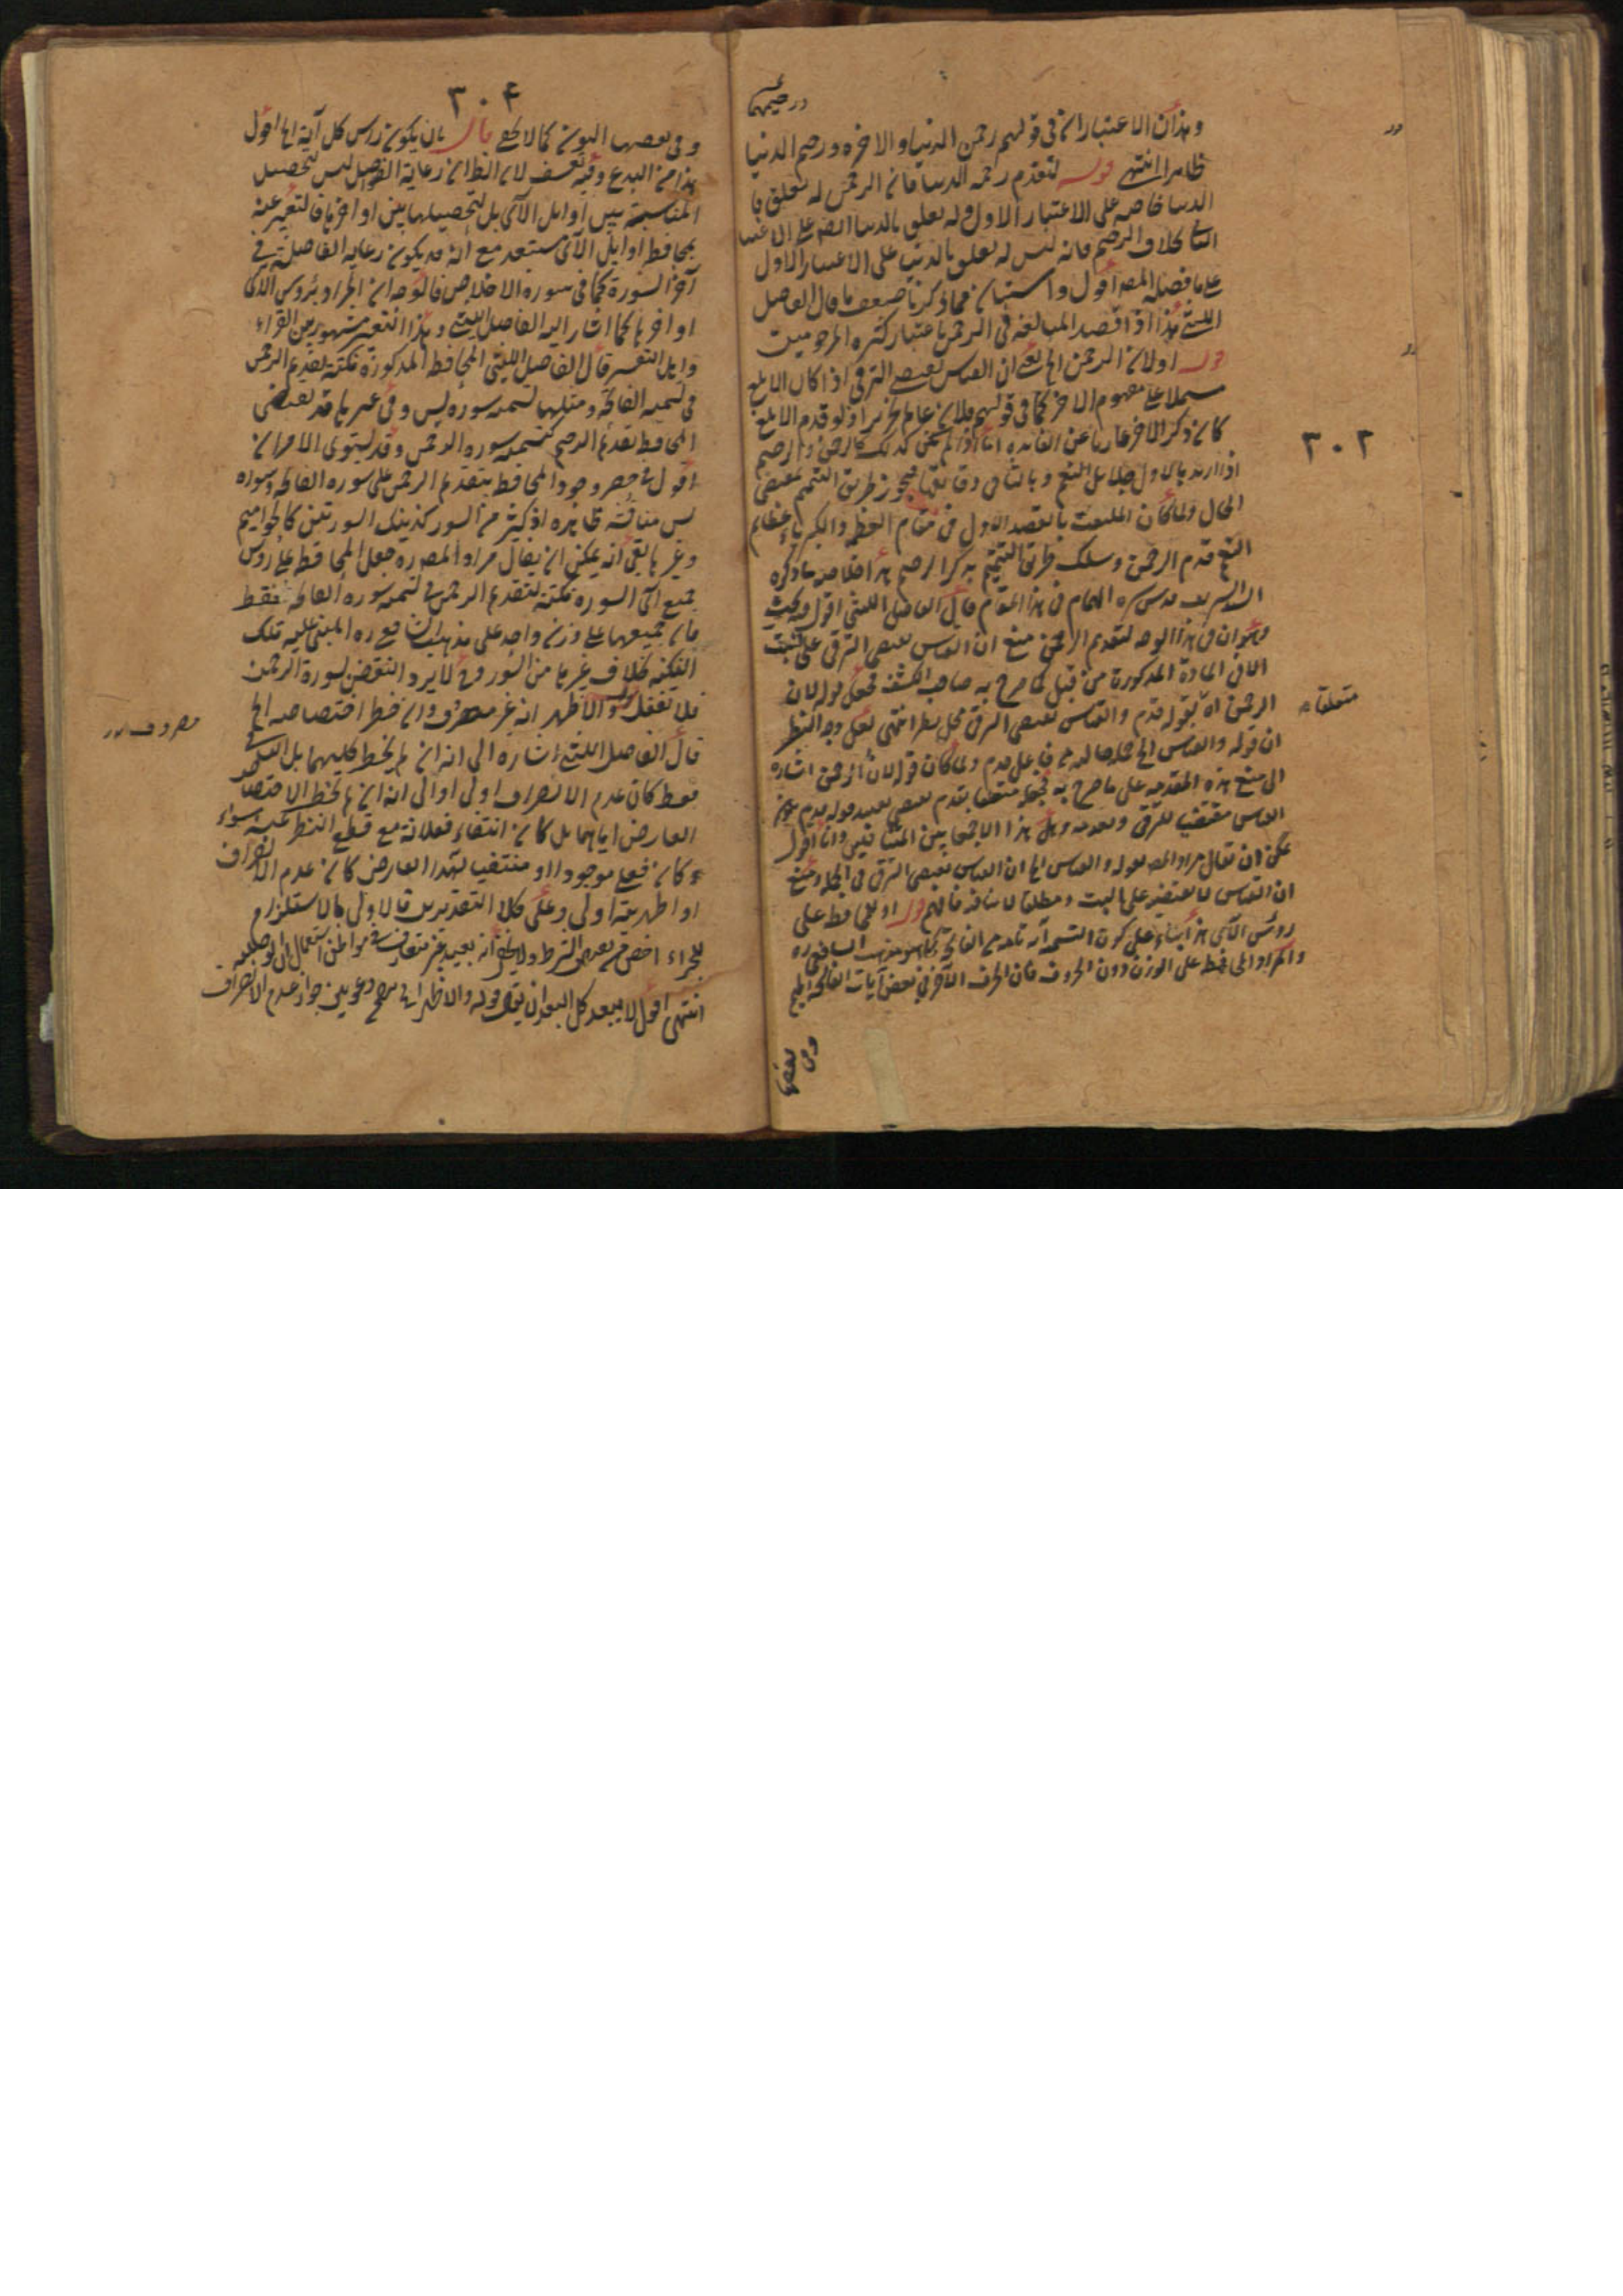 ورحيمهما
وهذان الاعتباران في قولهم رحمن الدنيا والاخره ورحيم الدنيا
ظاهرا انتهى قوله لتقدم رحمه الدنيا فان الرحمن له تعلق با
الدنيا خاصه على الاعتبار الاول وله تعلق بالدنيا ايضا على الاعتبار
الثاني بخلاف الرحيم فانه ليس له تعلق بالدنيا على الاعتبار الاول
على ما فصله المصه اقول واستبان مما ذكرنا ضعف ما قال الفاضل
الليثي هذا اذا قصد المبالغه في الرحمن باعتبار كثره المرحومين
قوله اولان الرحمن الخ يعني ان القياس يقتضي الترقي اذا كان الابلغ
مشتملا على مفهوم الاخر كما في قولهم فلان عالم نحرير اذ لو قدم الابلغ
كان ذكر الاخر عاريا عن الفايده اما اذا لم يكن كذلك كالرحمن والرحيم
اذا اريد بالاول جلايل النعم وبالثاني دقايقها فيجوز طريق التتميم بمقتضى
الحال ولما كان الملتفت بالقصد الاول في مقام العظمه والكبرياء عظايم
النعم قدم الرحمن وسلك طريق التتميم بذكر الرحيم هذا خلاصه ما ذكره
السيد الشريف قدس سره الهمام في هذا المقام قال الفاضل الليثي اقول فيه بحث
وهو ان في هذا الوجه لتقديم الرحمن منع ان القياس يقتضي الترقي على
الاتي المادة المذكورة من قبل كما صرح به صاحب الكشف فجعل قوله لان
الرحمن اه بقوله قدم والقياس يقتضي الترقي محل نظر انتهى لعل وجه النظر
ان قوله والقياس الخ جملة حاليه من فاعل قدم ولما كان قوله لان الرحمن اشارة
الى منع هذه المقدمه على ما صرح به فجعله متعلقا بقدم يقتضي تقييد قوله قدم بكون
القياس مقتضيا للترقي وبعدمه وهل هذا الا جمعا بين المتنافيين وانا اقول
يمكن ان يقال مراد المصه بقوله والقياس الخ ان القياس يقتضي الترقي في الجملة ومنع
ان القياس لا يقتضيه على البت ومطلقا لا ينافيه فافهم قوله او للمحافظه على
رؤس الآي هذا بناء على كون التسميه آية تامه من الفاتحة كما هو مذهب الشافعي ره
والمراد المحافظه على الوزن دون الحروف فان الحرف الآخر في بعض آيات الفاتحه الميم
وفي بعضها
٣٠٢
متعلقا
٣٠۴
وفي بعضها النون كما لا يخفى قال بان يكون راس كل آية الخ اقول
هذا من البدع وفيه تعسف لان الظ ان رعاية الفواصل ليس لتحصيل
المناسبة بين اوايل الآي بل لتحصيلها بين اواخرها فالتعبير عنه
بمحافظه اوايل الآي مستبعد مع انه قد يكون رعايه الفاصلة في
آخر السورة كما في سوره الاخلاص فالوجه ان المراد برؤس الآي
اواخرها كما اشار اليه الفاضل الليثي وهذا التعبير مشهور بين القراء
واهل التفسير قال الفاضل الليثي المحافظه المذكورة نكتة لتقديم الرحمن
في تسميه الفاتحه ومثلها تسميه سوره يس وفي غيرها قد يقتضي
المحافظه تقديم الرحيم كتسميه سوره الرحمن وقد يستوي الامران
اقول في حصر وجود المحافظه بتقديم الرحمن على سوره الفاتحه وسوره
يس مناقشه ظاهره اذ كثير من السور كذينك السورتين كالحواميم
وغيرها بقي انه يمكن ان يقال مراد المصه ره جعل المحافظه على رؤس
جميع آي السوره نكتة لتقديم الرحمن في تسميه سوره الفاتحه فقط
فان جميعها على وزن واحد على مذهب الشافعي ره المبني عليه تلك
النكته بخلاف غيرها من السور وح لا يرد النقض بسورة الرحمن
فلا تغفل قوله والاظهر انه غير مصروف وان حظر اختصاصه الخ
قال الفاضل الليثي اشاره الى انه ان لم يحظر كليهما بل الثاني
فقط كان عدم الانصراف اولى او الى انه ان لم يحظر الاختصاص
العارض اياهما بل كان انتفاء فعلانة مع قطع النظر عنه سواء
كان فعلى موجودا او منتفيا لهذا العارض كان عدم الانصراف
او اظهريته اولى وعلى كلا التقديرين فالاولى بالاستلزام
للجزاء اخص من نقيض الشرط ولا يخفى انه بعيد غير متعارف في مواطن استعمال ان الوصليه
انتهى اقول لا يبعد كل البعد ان يكون قوله والاظهر ان
مصروف